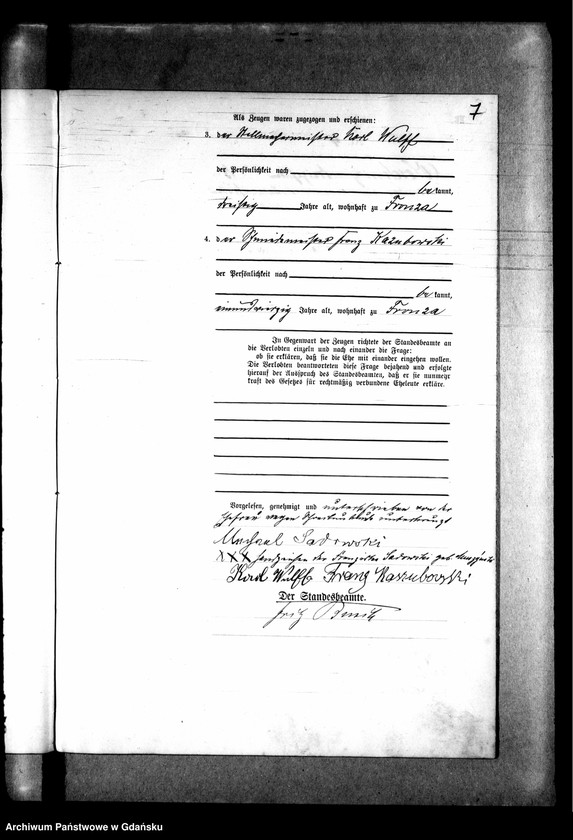 7
Als Zeugen waren zugezogen und erschienen:
3. der Stellmachermeister Karl Wulff
der Persönlichkeit nach
be kannt,
dreißig Jahre alt, wohnhaft zu Fronza
4. der Schmiedemeister Franz Kazubowski
der Persönlichkeit nach
be kannt,
einundvierzig Jahre alt, wohnhaft zu Fronza
In Gegenwart der Zeugen richtete der Standesbeamte an
die Verlobten einzeln und nach einander die Frage:
ob sie erklären, daß sie die Ehe mit einander eingehen wollen.
Die Verlobten beantworteten diese Frage bejahend und erfolgte
hierauf der Ausspruch des Standesbeamten, daß er sie nunmehr
kraft des Gesetzes für rechtmäßig verbundene Eheleute erkläre.
Vorgelesen, genehmigt und unterschrieben von der
Ehefrau wegen Schreibunkunde unterkreuzt
Michael Sadowski
XXX Handzeichen der Franziska Sadowski geb.
Karl Wulff Franz Kaszubowski
Der Standesbeamte.
Fritz
Archiwum Państwowe w Gdańsku